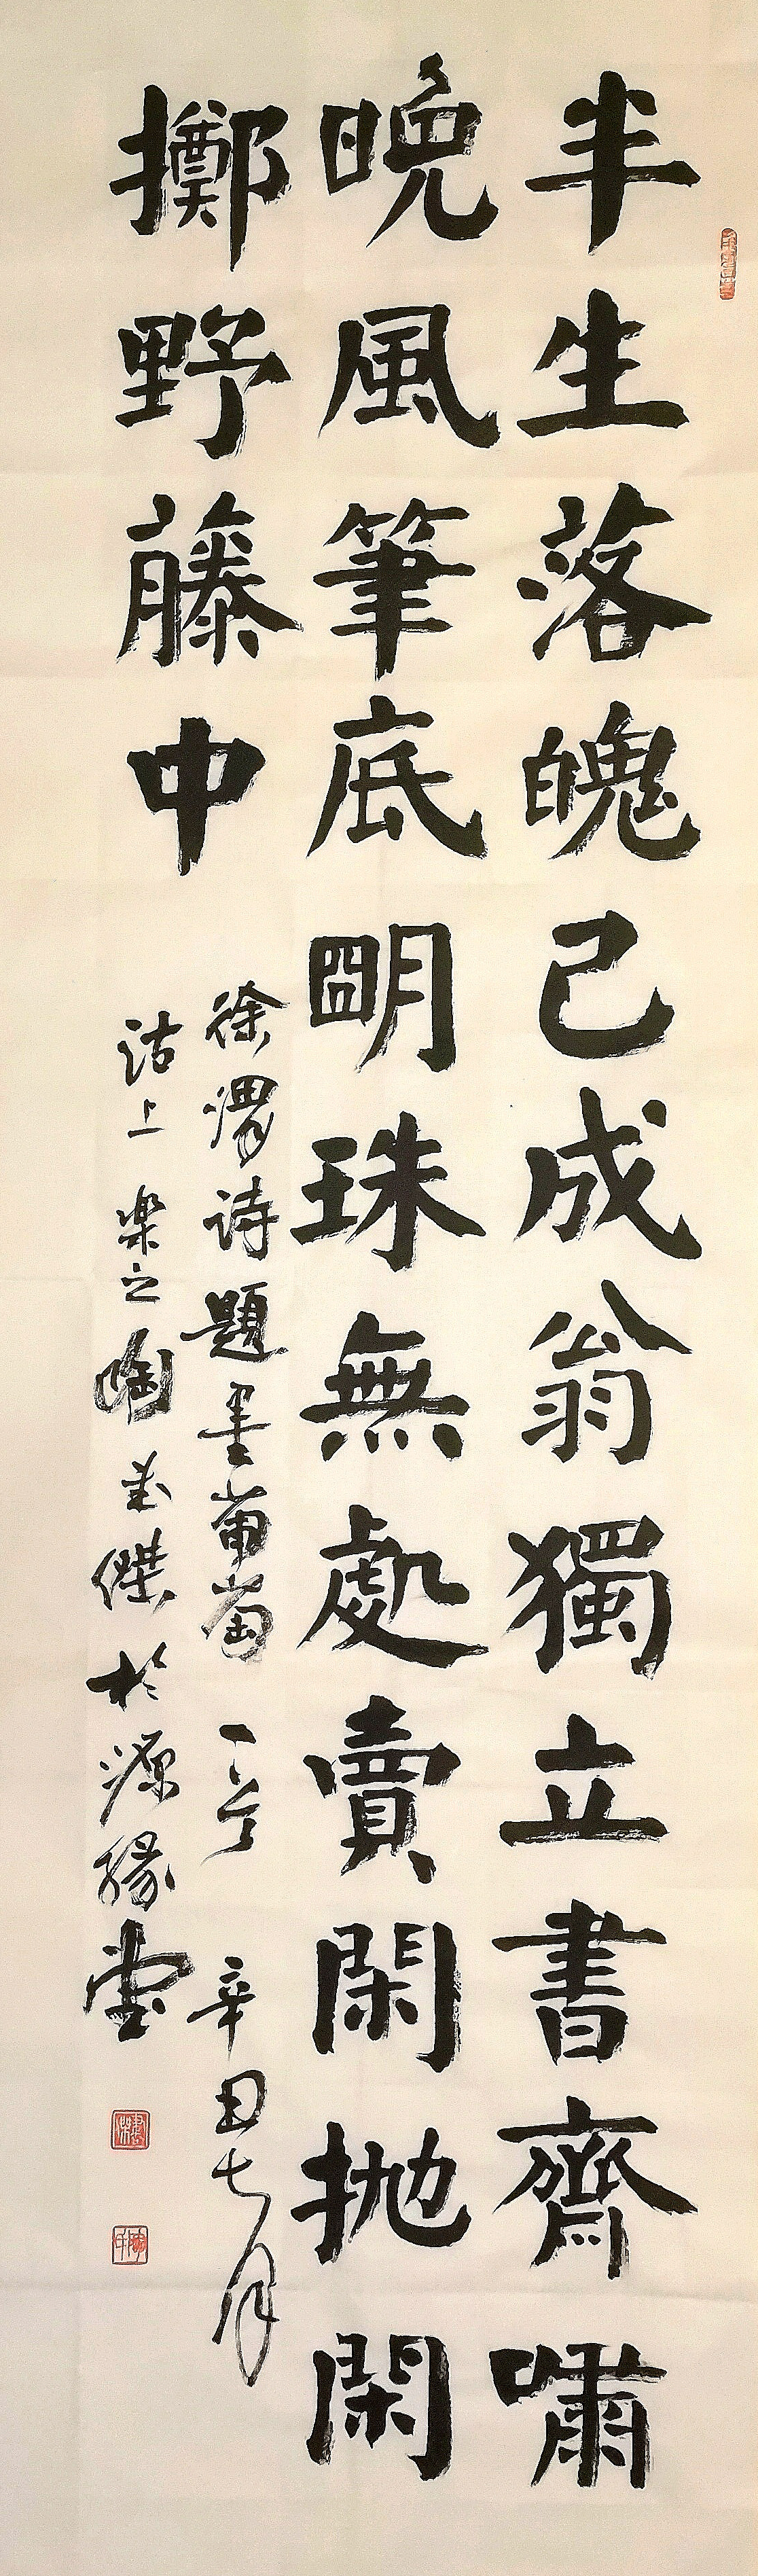 半生落魄已成翁獨立書齋嘯
晚風筆底明珠無處賣閑拋閑
擲野藤中
徐渭诗題墨葡萄一首 辛丑七月
沽上樂之陶傑於源緣堂